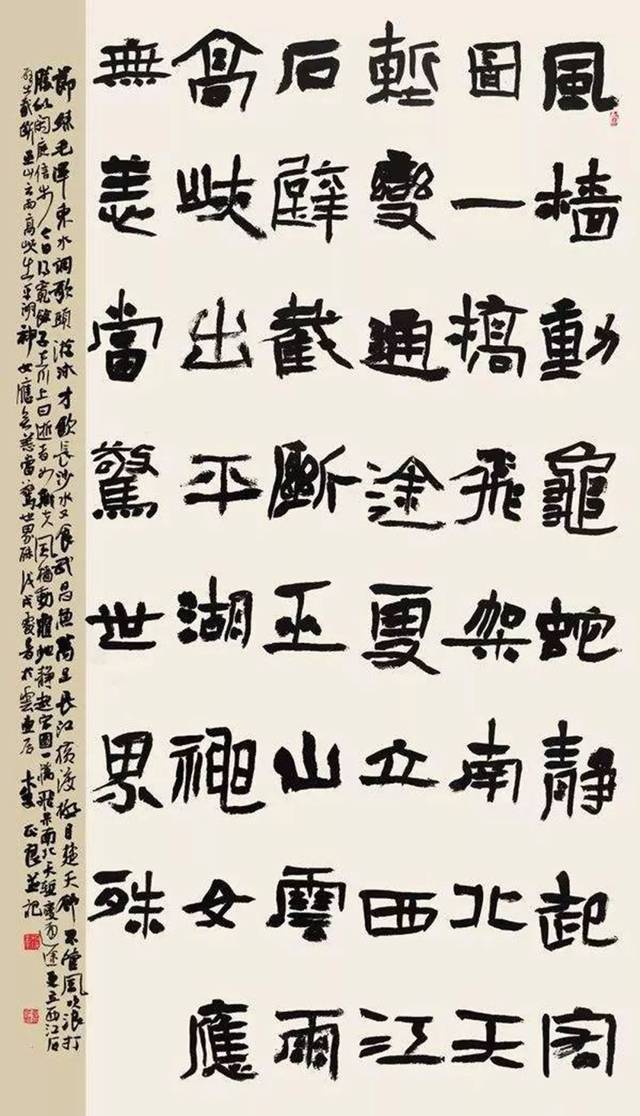 風檣動龜蛇靜起宏
圖一橋飛架南北天
塹變通途更立西江
石壁截斷巫山雲雨
高峽出平湖神女應
無恙當驚世界殊
節錄毛澤東水調歌頭游泳才飲長沙水又食武昌魚萬里長江橫渡極目楚天舒不管風吹浪打
勝似閒庭信步今日得寬餘子在川上曰逝者如斯夫風檣動龜蛇靜起宏圖一橋飛架南北天塹變通途更立西江石
壁截斷巫山云雨高峽出平湖神女應無恙當驚世界殊戊戌於雲並記